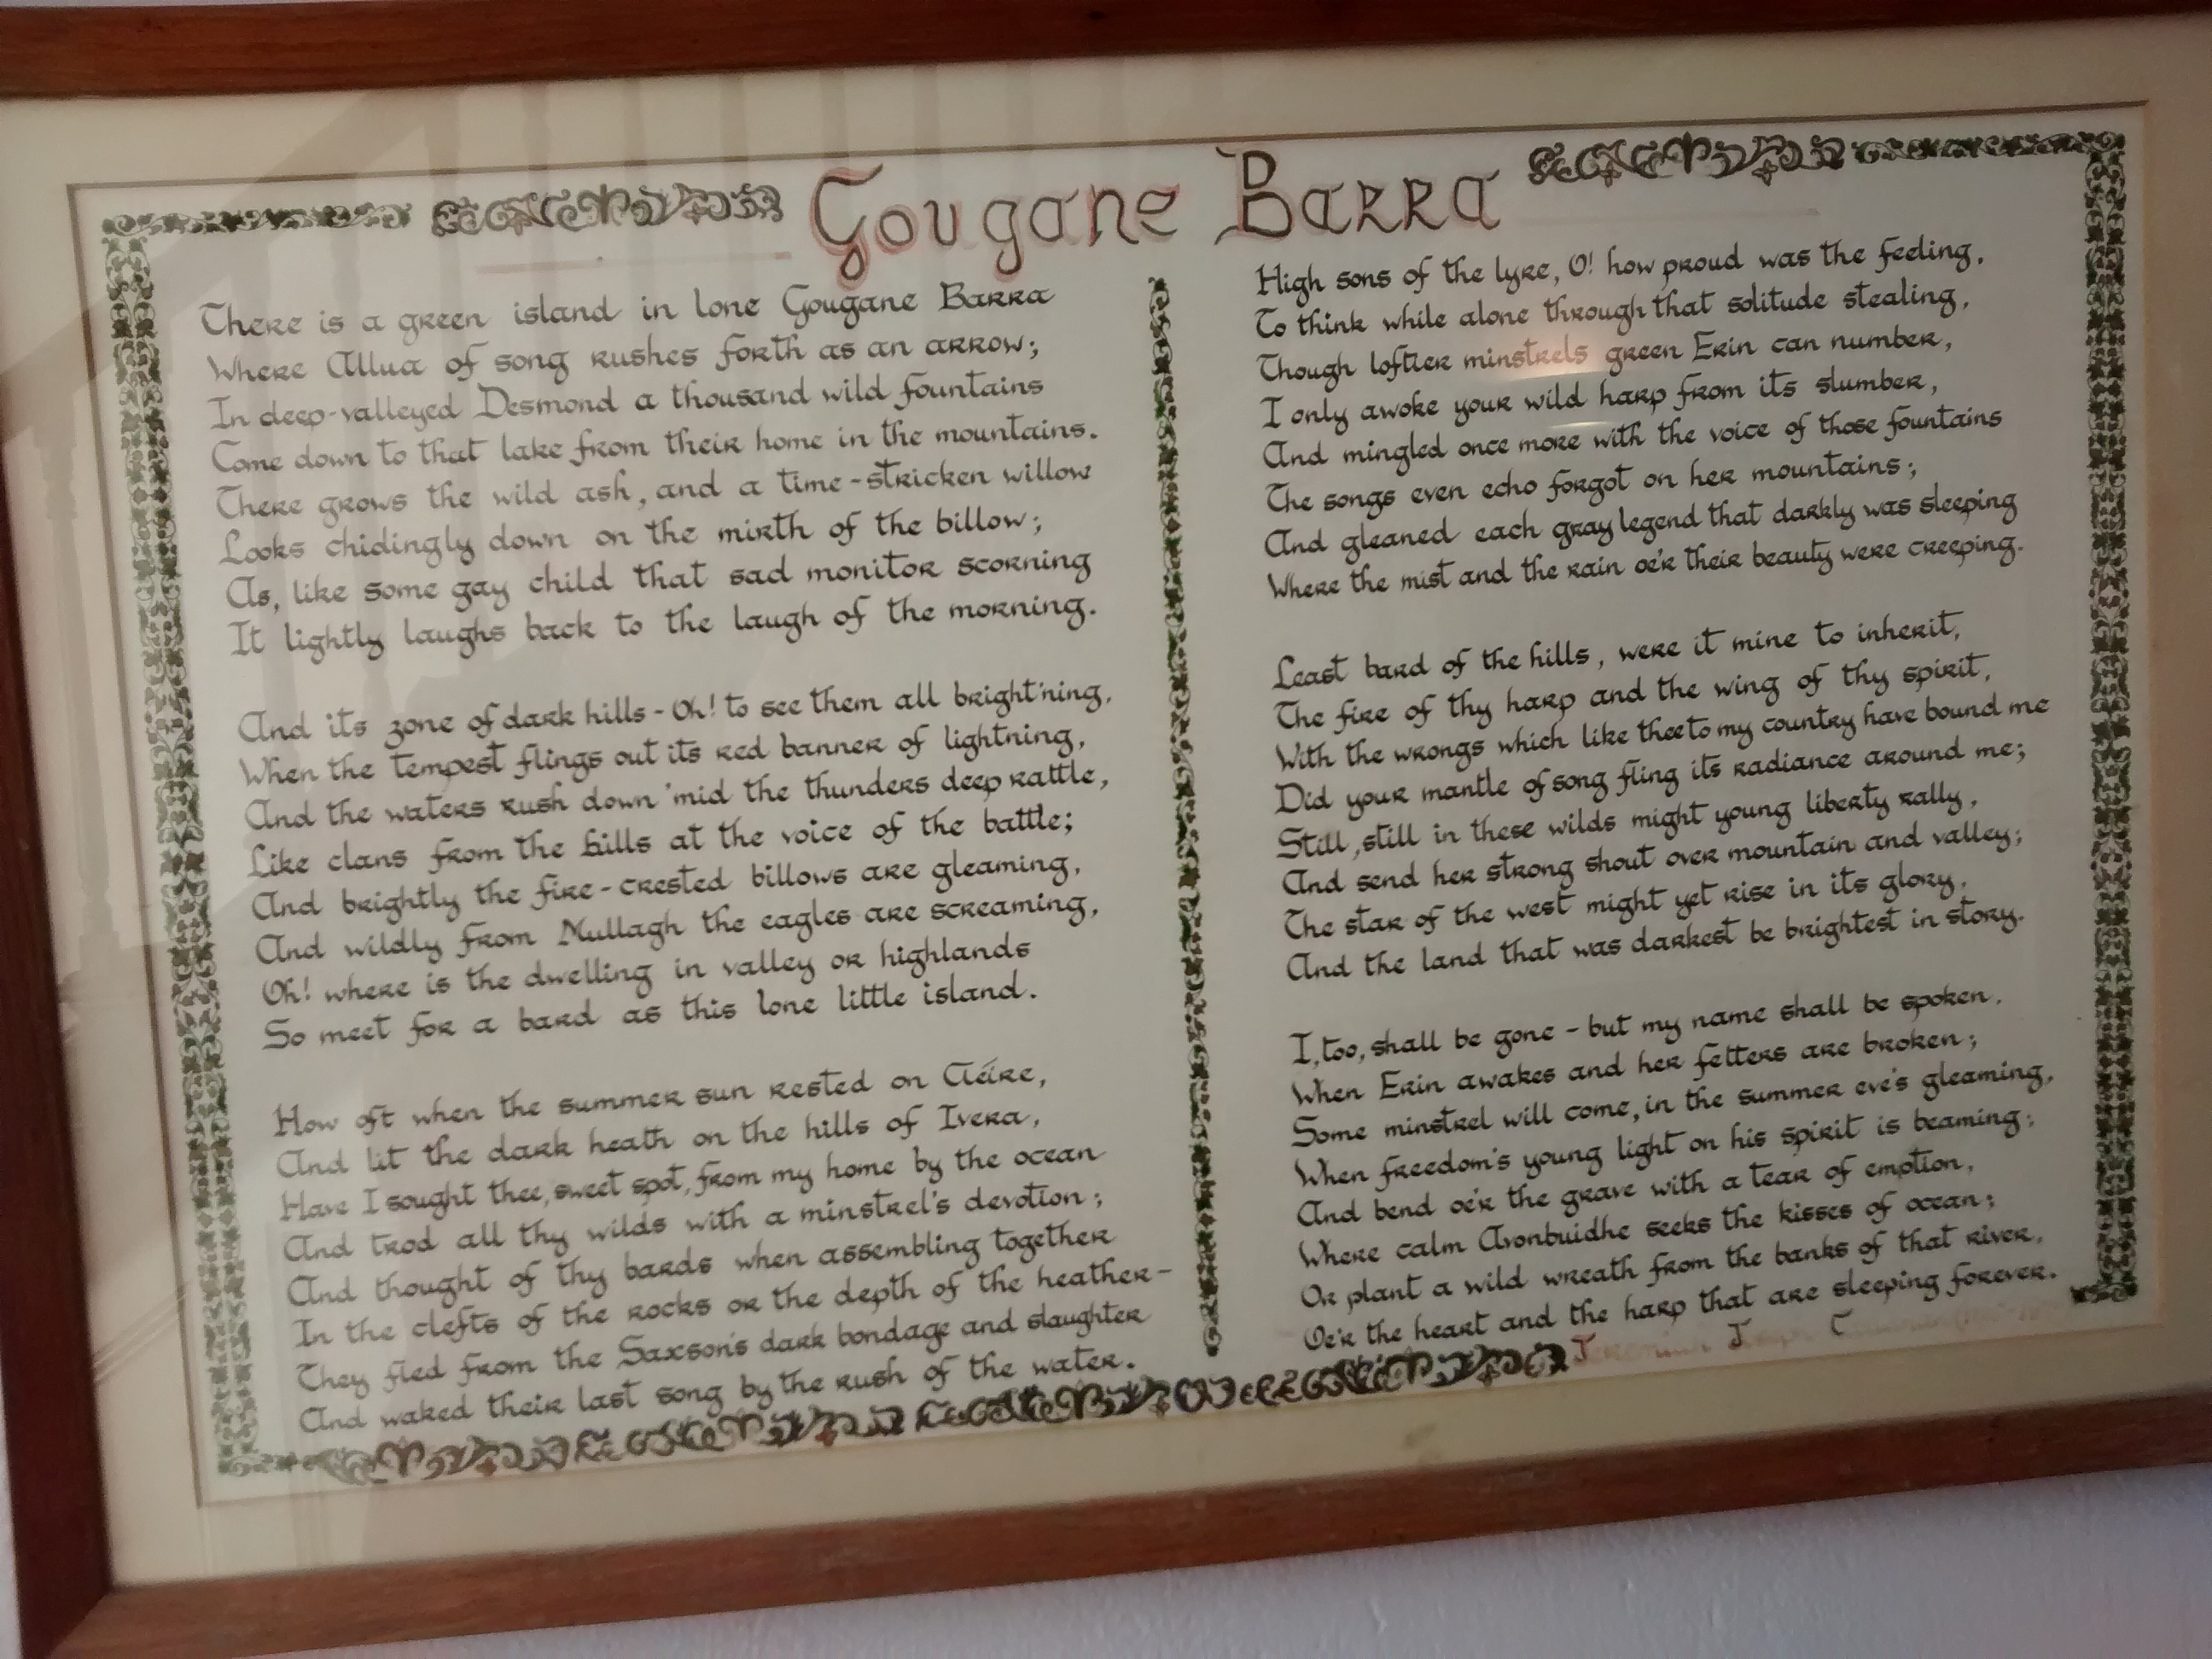 Gougane Barra
There is a green island in lone Gougane Barra
Where Allua of song rushes forth as an arrow;
In deep-valleyed Desmond a thousand wild fountains
Come down to that lake from their home in the mountains.
There grows the wild ash, and a time-stricken willow
Looks chidingly down on the mirth of the billow;
As, like some gay child that sad monitor scorning
It lightly laughs back to the laugh of the morning.
And its zone of dark hills - Oh! to see them all bright'ning,
When the tempest flings out its red banner of lightning,
And the waters rush down 'mid the thunders deep rattle,
Like clans from the hills at the voice of the battle;
And brightly the fire-crested billows are gleaming,
And wildly from Mullagh the eagles are screaming,
Oh! where is the dwelling in valley or highlands
So meet for a bard as this lone little island.
How oft when the summer sun rested on Cléire,
And lit the dark heath on the hills of Ivera,
Have I sought thee, sweet spot, from my home by the ocean
And trod all thy wilds with a minstrel's devotion;
And thought of thy bards when assembling together
In the clefts of the rocks or the depth of the heather-
They fled from the Saxson's dark bondage and slaughter
And waked their last song by the rush of the water.
High sons of the lyre, O! how proud was the feeling,
To think while alone through that solitude stealing,
Though loftier minstrels green Erin can number,
I only awoke your wild harp from its slumber,
And mingled once more with the voice of those fountains
The songs even echo forgot on her mountains;
And gleaned each gray legend that darkly was sleeping
Where the mist and the rain oe'r their beauty were creeping.
Least bard of the hills, were it mine to inherit,
The fire of thy harp and the wing of thy spirit,
With the wrongs which like thee to my country have bound me
Did your mantle of song fling its radiance around me;
Still, still in these wilds might young liberty rally,
And send her strong shout over mountain and valley;
The star of the west might yet rise in its glory,
And the land that was darkest be brightest in story.
I, too, shall be gone - but my name shall be spoken,
When Erin awakes and her fetters are broken;
Some minstrel will come, in the summer eve's gleaming,
When freedom's young light on his spirit is beaming;
And bend oe'r the grave with a tear of emotion,
Where calm Avonbuidhe seeks the kisses of ocean;
Or plant a wild wreath from the banks of that river,
Oe'r the heart and the harp that are sleeping forever.
Jeremiah Joseph